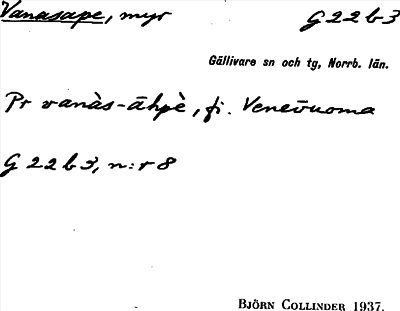 Vanasape, myr G22b3
Gällivare sn och tg, Norrb. län.
Pr vanàs-āhpè, fi. Venevuoma
G22b3, n:r 8
BJÖRN COLLINDER 1937.